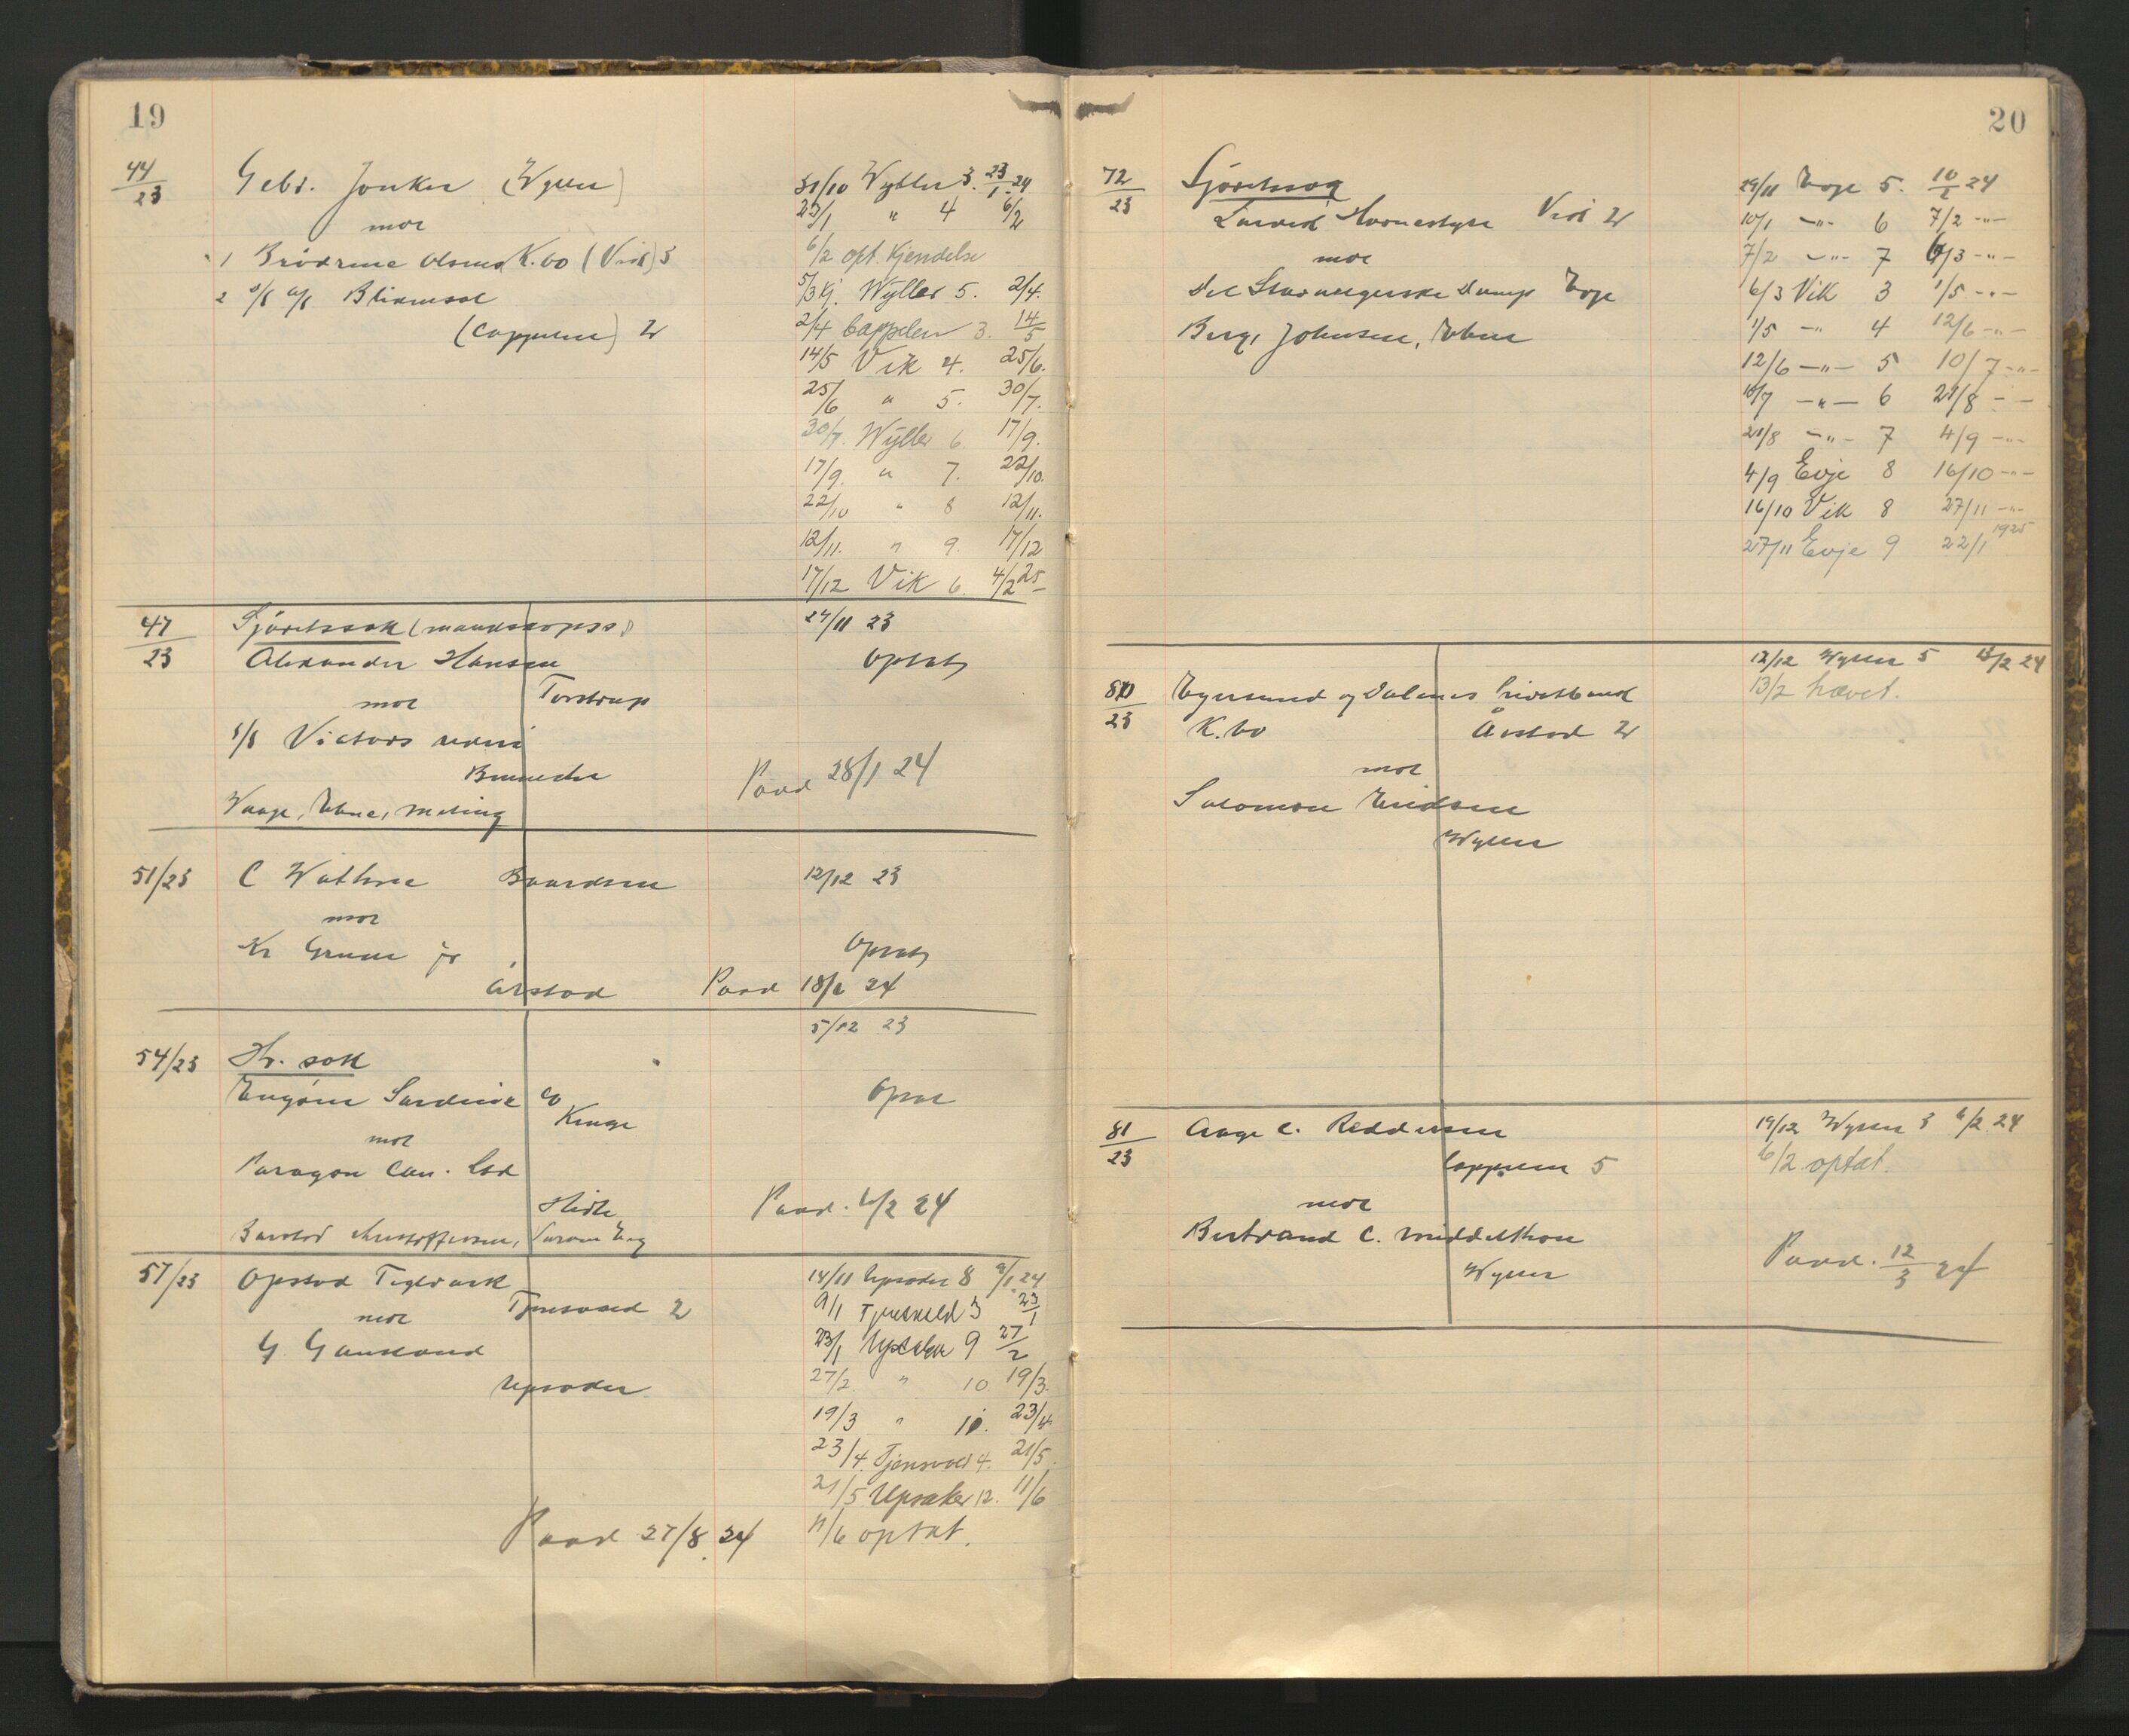 19
44/23 Gebr. Jonker (Wyller)
mot
1 Brödrene Olsens K.bo (Vik) 5
2 s/s a/s Blidensol
(Cappelen) 2
31/10 Wyller 3. 23/1.24
23/1 " 4 6/2
6/2 opt. Kjendelse
5/3 Kj. Wyller 5. 2/4.
2/4 Cappelen 3. 14/5
14/5 Vik 4. 25/6.
25/6 " 5. 30/7.
30/7. Wyller 6. 17/9.
17/9. " 7. 22/10.
22/10 " 8 12/11.
12/11. " 9. 17/12
17/12 Vik 6. 4/2 25
47/23 Sjöretssak (mandskapss)
Alexander Hansen
mot Torstrup
s/s Victors rederi
Waage, Ebne, Meling
27/11 23
Optat
Paad 28/1 24
51/23 C Wathne Baardsen
mot
Kr Grude jr
Årstad
12/12 23
Optat
Paad 18/2 24
54/23 Hr. sak
Enigheten Sardine Co
mot
Paragon Can. Ltd
5/12 23
Optat
Paad. 6/2 24
57/23 Opstad Teglverk
mot Tjensvold 2
G Gausland
Upsaker
14/11 Upsaker 8 9/1.24
9/1 Tjensvold 3 23/1
23/1 Upsaker 9 27/2
27/2. " 10. 19/3.
19/3 " 11. 23/4
23/4. Tjensvold 4. 21/5.
21/5 Upsaker 12. 11/6
11/6 optat.
Paad 27/8.24
20
72/23 Sjöretssag
Larvik Havnestyre Vik 2
mot
Det Stavangerske Damp Evje
Berg, Johnsen, Ebne
29/11 Evje 5. 10/1 24
10/1 —"— 6 7/2 —"—
7/2 —"— 7 6/3 —"—
6/3 Vik 3 1/5 —"—
1/5 —"— 4 12/6 —"—
12/6 —"— 5 10/7 —"—
10/7 —"— 6 21/8 —"—
21/8 —"— 7 4/9 —"—
4/9 Evje 8 16/10 —"—
16/10 Vik 8 27/11 —"—
27/11 Evje 9 22/1 1925
80/23 Egersund og Dalenes Privatbank
K.bo Årstad 2
mot
Salomon Eriksen
Wyller
12/12 Wyller 5 13/2 24
13/2 hævet.
81/23 Aage C. Reddersen
Cappelen 5
mot
Bertrand C. Middelthon
Wyller
19/12 Wyller 3 6/2.24
6/2 optat.
Paad. 12/3 24